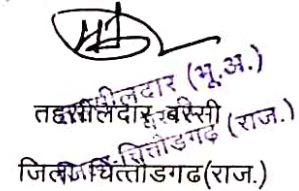 तहसीलदार (भू.अ.)
तहसीलदार, बस्सी
जिला-चित्तौडगढ (राज.)
जिला चित्तौडगढ(राज.)